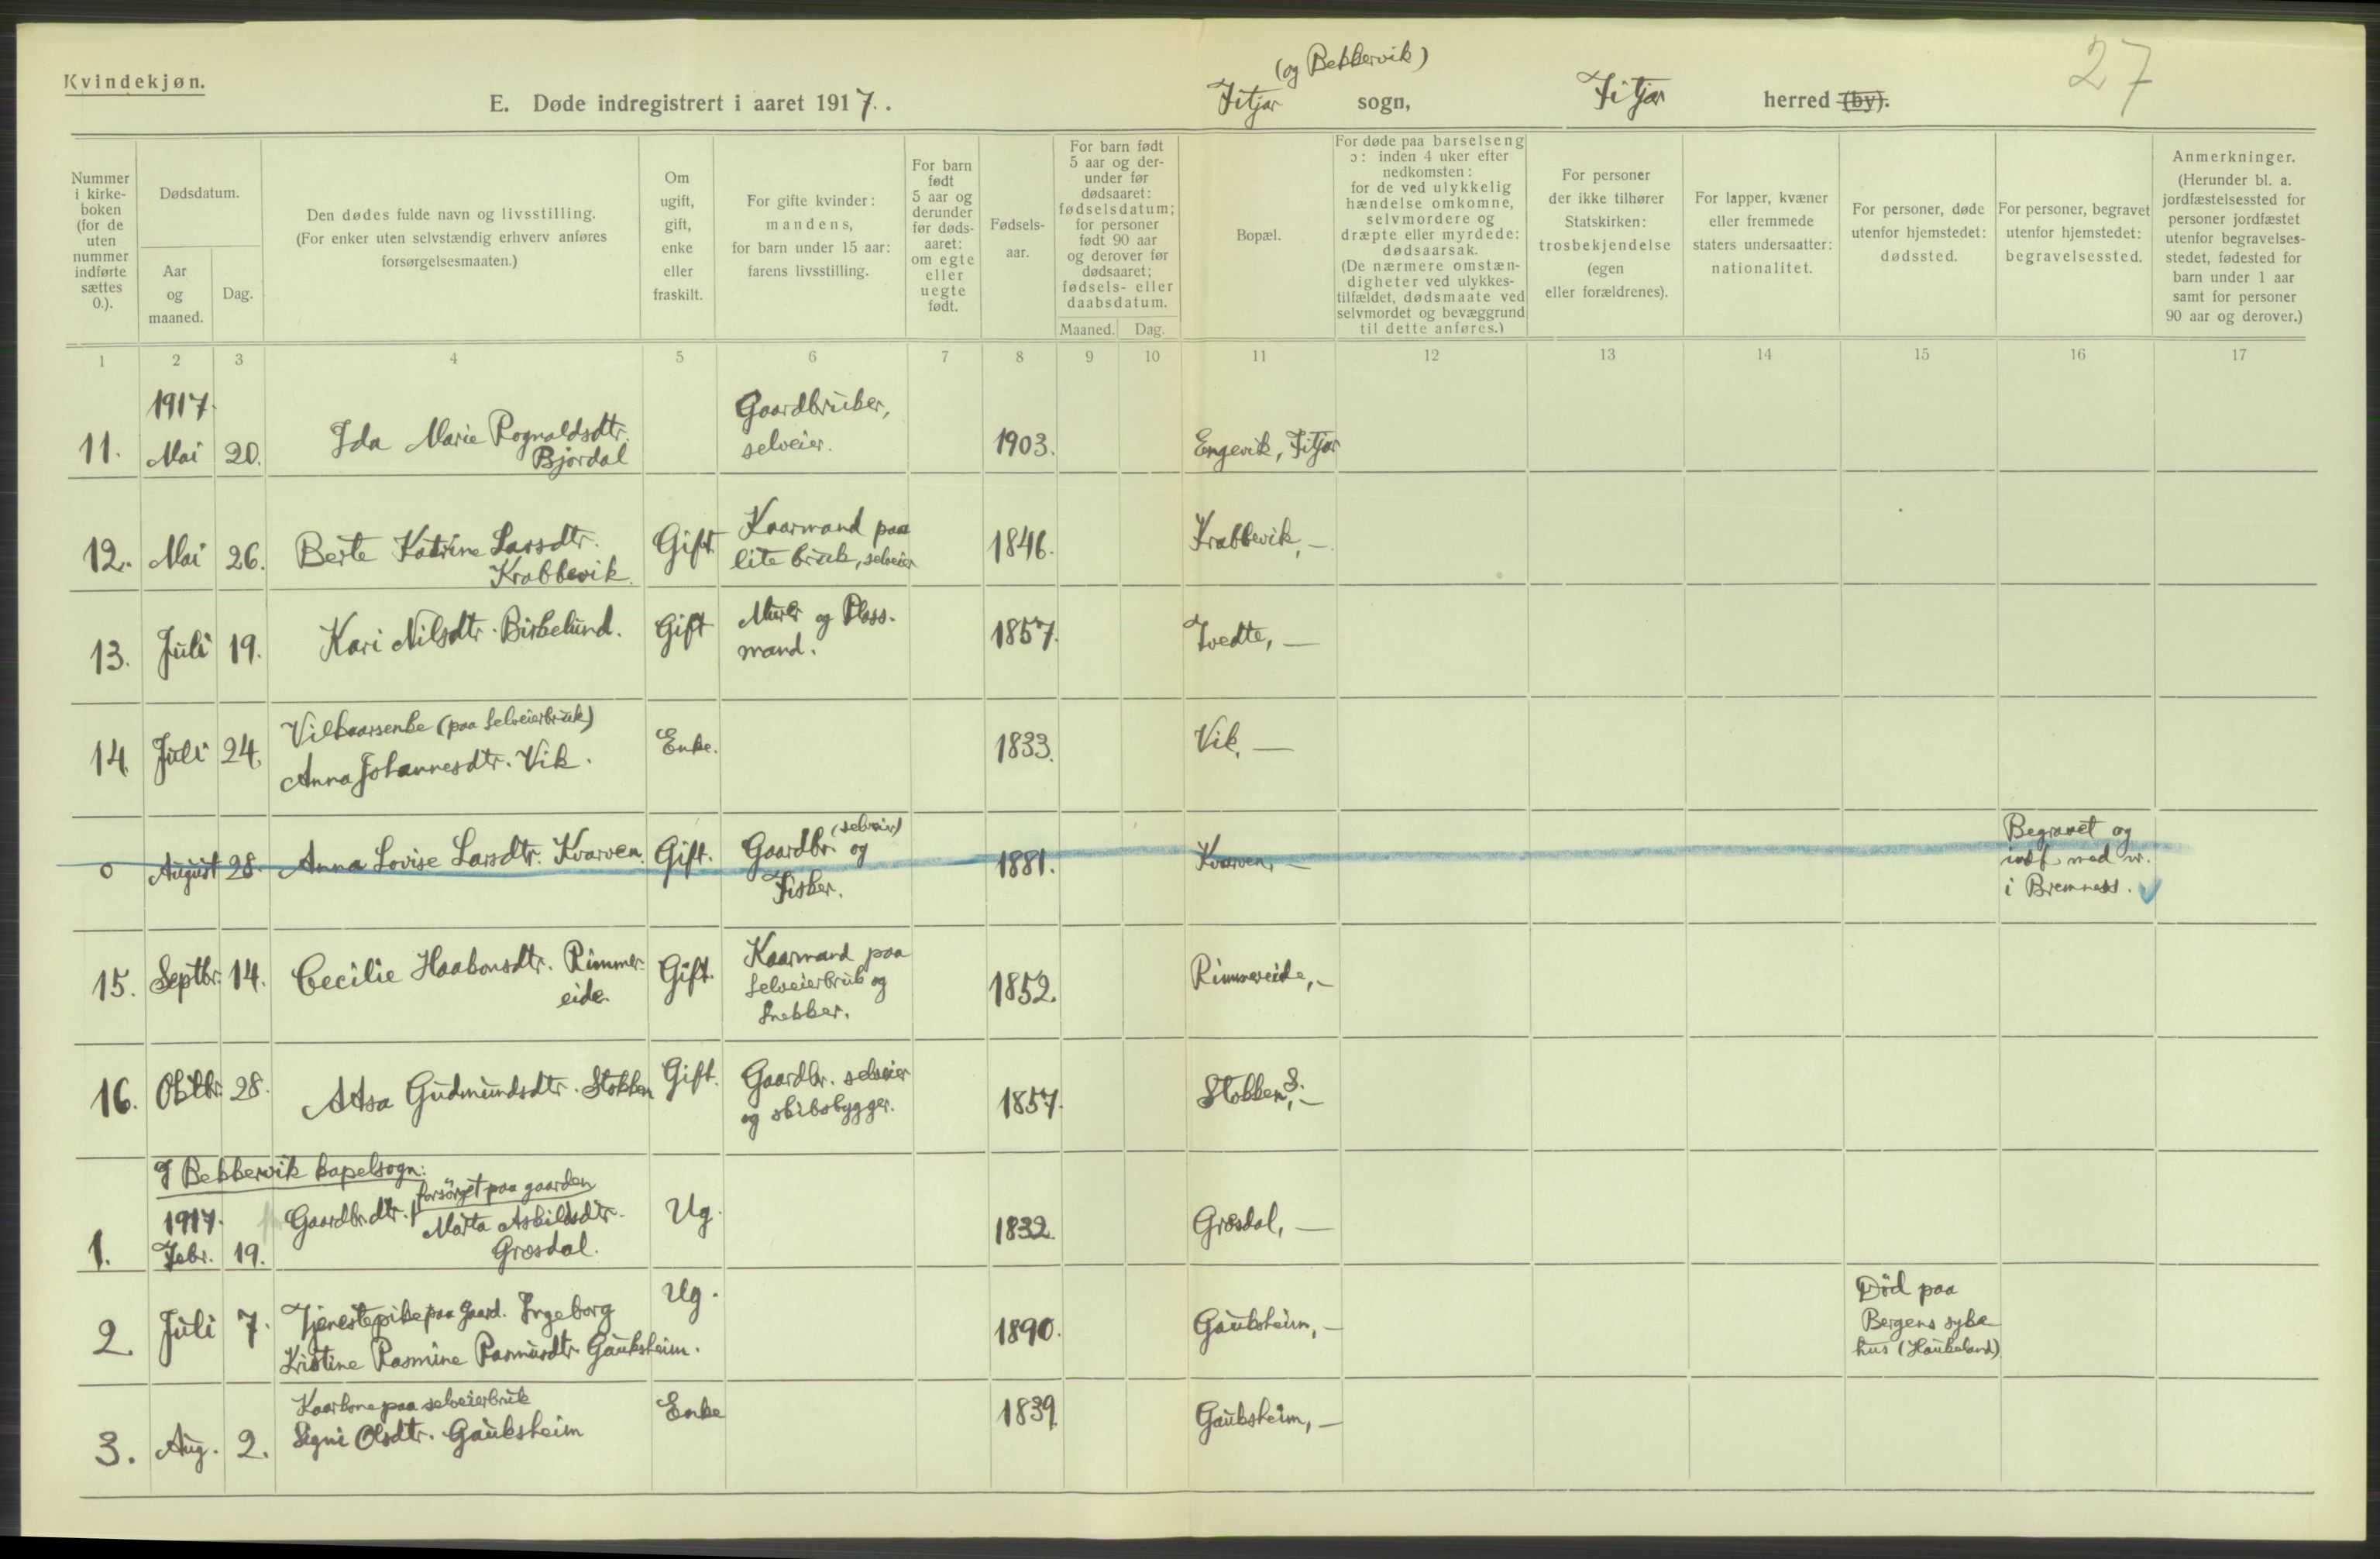 Kvindekjøn.
E. Døde indregistrert i aaret 1917.
(og Bekkervik)
Fitjar sogn,
Fitjar herred (by).
27
Nummer i kirke-boken (for de uten nummer indførte sættes 0.).
Dødsdatum.
Aar og maaned.
Dag.
Den dødes fulde navn og livsstilling.
(For enker uten selvstændig erhverv anføres
forsørgelsesmaaten.)
Om ugift, gift, enke eller fraskilt.
For gifte kvinder:
mandens,
for barn under 15 aar:
farens livsstilling.
For barn født 5 aar og derunder før døds-aaret: om egte eller uegte født.
Fødsels-aar.
For barn født 5 aar og der-under før dødsaaret: fødselsdatum; for personer født 90 aar og derover før dødsaaret; fødsels- eller daabsdatum.
Maaned. Dag.
Bopæl.
For døde paa barselseng
ɔ: inden 4 uker efter
nedkomsten:
for de ved ulykkelig
hændelse omkomne,
selvmordere og
dræpte eller myrdede:
dødsaarsak.
(De nærmere omstæn-
digheter ved ulykkes-
tilfældet, dødsmaate ved
selvmordet og bevæggrund
til dette anføres.)
For personer
der ikke tilhører
Statskirken:
trosbekjendelse
(egen
eller forældrenes).
For lapper, kvæner
eller fremmede
staters undersaatter:
nationalitet.
For personer, døde
utenfor hjemstedet:
dødssted.
For personer, begravet
utenfor hjemstedet:
begravelsessted.
Anmerkninger.
(Herunder bl. a.
jordfæstelsessted for
personer jordfæstet
utenfor begravelses-
stedet, fødested for
barn under 1 aar
samt for personer
90 aar og derover.)
1 2 3 4 5 6 7 8 9 10 11 12 13 14 15 16 17
1917.
11. Mai 20. Ida Marie Rognaldsdtr. Bjordal
Gaardbruker, selveier.
1903. Engevik, Fitjar
12. Mai 26. Berte Katrine Larsdtr. Krabbevik.
Gift. Kaarmand paa lite bruk, selveier
1846. Krabbevik, —
13. Juli 19. Kari Nilsdtr. Birkelund.
Gift Murer og Plass-mand.
1857. Tvedte, —
14. Juli 24. Vilkaarsenke (paa selveierbruk)
Anna Johannesdtr. Vik.
Enke. 1833. Vik, —
0 August 28. Anna Lovise Larsdtr. Kvarven.
Gift. Gaardbr. (selveier) og Fisker.
1881. Kvarven, —
Begravet og
indf. med nr.
i Bremness.
15. Septbr. 14. Cecilie Haakonsdtr. Rimmer-eide.
Gift. Kaarmand paa selveierbruk og snekker.
1852. Rimmereide, —
16. Oktbr. 28. Aasa Gudmundsdtr. Stokken
Gift. Gaardbr. selveier og skibsbygger.
1857. Stokken, S. —
I Bekkervik kapelsogn:
1917.
1. Febr. 19. Gaardbr.dtr. forsörget paa gaarden
Marta Askildsdtr. Græsdal.
Ug. 1832. Græsdal, —
2. Juli 7. Tjenestepike paa Gaard. Ingeborg
Kristine Rasmine Rasmusdtr. Gauksheim.
Ug. 1890. Gauksheim, —
Död paa
Bergens syke-
hus (Haukeland)
3. Aug. 2. Kaarkone paa selveierbruk
Signi Olsdtr. Gauksheim
Enke 1839. Gauksheim, —